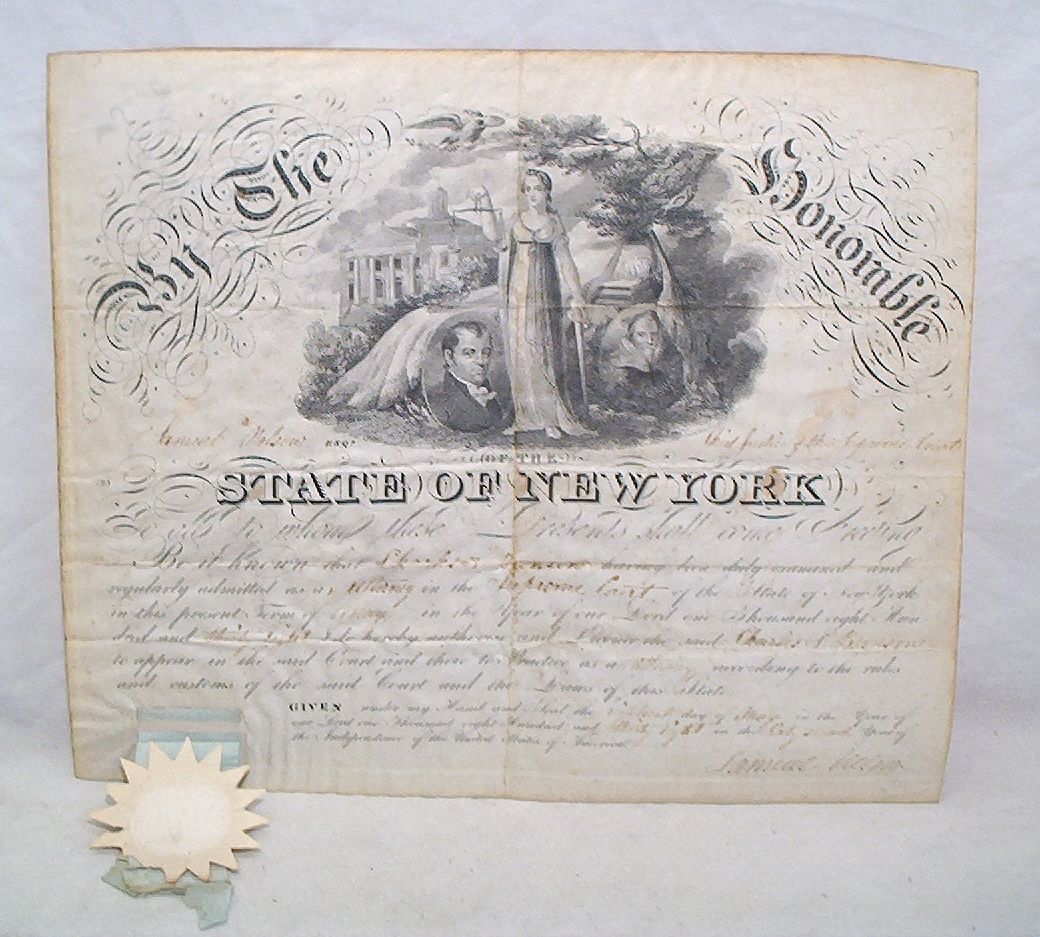 By The Honorable
Samuel Nelson ESQR Chief Justice of the Supreme Court
OF THE
STATE OF NEW YORK
To all to whom these Presents shall come Greeting
Be it known that Charles having been duly examined and
regularly admitted as a Attorney in the Supreme Court of the State of New York
in this present Term of May in the Year of our Lord one thousand eight Hun
dred and thirty eight I do hereby authorise and License the said Charles
to appear in the said Court and there to Practice as a Attorney according to the rules
and customs of the said Court and the Laws of this State.
GIVEN under my Hand and Seal the day of May in the Year of
our Lord one thousand eight Hundred and thirty eight in the Year of
the Independence of the United States of America.
Samuel Nelson